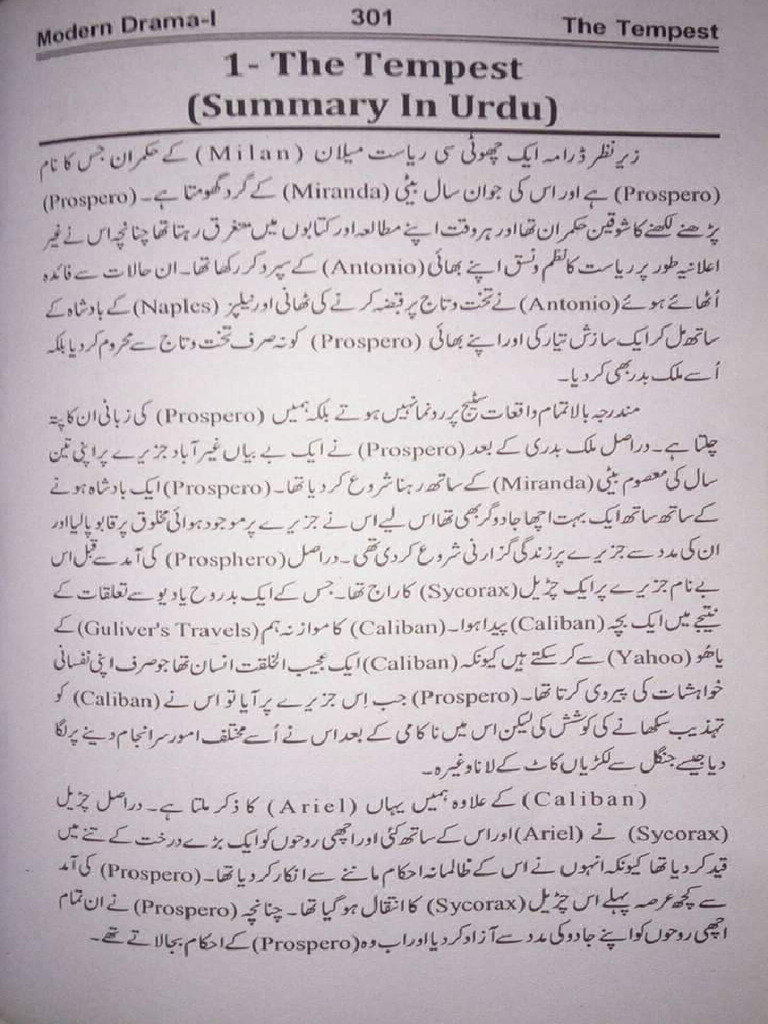 Modern Drama-I 301 The Tempest
1- The Tempest
(Summary In Urdu)
زیر نظر ڈرامہ ایک چھوٹی سی ریاست میلان (Milan) کے حکمران جس کا نام
(Prospero) ہے اور اس کی جوان سال بیٹی (Miranda) کے گرد گھومتا ہے۔ (Prospero)
پڑھنے لکھنے کا شوقین حکمران تھا اور ہر وقت اپنے مطالعہ اور کتابوں میں متغرق رہتا تھا چنانچہ اس نے غیر
اعلانیہ طور پر ریاست کا نظم و نسق اپنے بھائی (Antonio) کے سپرد کر رکھا تھا۔ ان حالات سے فائدہ
اُٹھائے ہوئے (Antonio) نے تخت و تاج پر قبضہ کرنے کی ٹھانی اور نیپلز (Naples) کے بادشاہ کے
ساتھ مل کر ایک سازش تیار کی اور اپنے بھائی (Prospero) کو نہ صرف تخت و تاج سے محروم کر دیا بلکہ
اُسے ملک بدر بھی کر دیا۔
مندرجہ بالا تمام واقعات سٹیج پر رونما نہیں ہوتے بلکہ ہمیں (Prospero) کی زبانی ان کا پتہ
چلتا ہے۔ دراصل ملک بدری کے بعد (Prospero) نے ایک بے بیاں غیر آباد جزیرے پر اپنی تین
سال کی معصوم بیٹی (Miranda) کے ساتھ رہنا شروع کر دیا تھا۔ (Prospero) ایک بادشاہ ہونے
کے ساتھ ساتھ ایک بہت اچھا جادوگر بھی تھا اس لیے اس نے جزیرے پر موجود ہوائی مخلوق پر قابو پا لیا اور
ان کی مدد سے جزیرے پر زندگی گزارنی شروع کر دی تھی۔ دراصل (Prosphero) کی آمد سے قبل اس
بے نام جزیرے پر ایک چڑیل (Sycorax) کا راج تھا۔ جس کے ایک بدروح یا دیو سے تعلقات کے
نتیجے میں ایک بچہ (Caliban) پیدا ہوا۔ (Caliban) کا موازنہ ہم (Guliver's Travels) کے
یاھُو (Yahoo) سے کر سکتے ہیں کیونکہ (Caliban) ایک عجیب الخلقت انسان تھا جو صرف اپنی نفسانی
خواہشات کی پیروی کرتا تھا۔ (Prospero) جب اِس جزیرے پر آیا تو اس نے (Caliban) کو
تہذیب سکھانے کی کوشش کی لیکن اس میں ناکامی کے بعد اس نے اُسے مختلف امور سرانجام دینے پر لگا
دیا جیسے جنگل سے لکڑیاں کاٹ کے لانا وغیرہ۔
(Caliban) کے علاوہ ہمیں یہاں (Ariel) کا ذکر ملتا ہے۔ دراصل چڑیل
(Sycorax) نے (Ariel) اور اس کے ساتھ کئی اور اچھی روحوں کو ایک بڑے درخت کے تنے میں
قید کر دیا تھا کیونکہ انہوں نے اس کے ظالمانہ احکام ماننے سے انکار کر دیا تھا۔ (Prospero) کی آمد
سے کچھ عرصہ پہلے اس چڑیل (Sycorax) کا انتقال ہو گیا تھا۔ چنانچہ (Prospero) نے ان تمام
اچھی روحوں کو اپنے جادو کی مدد سے آزاد کر دیا اور اب وہ (Prospero) کے احکام بجا لاتے تھے۔